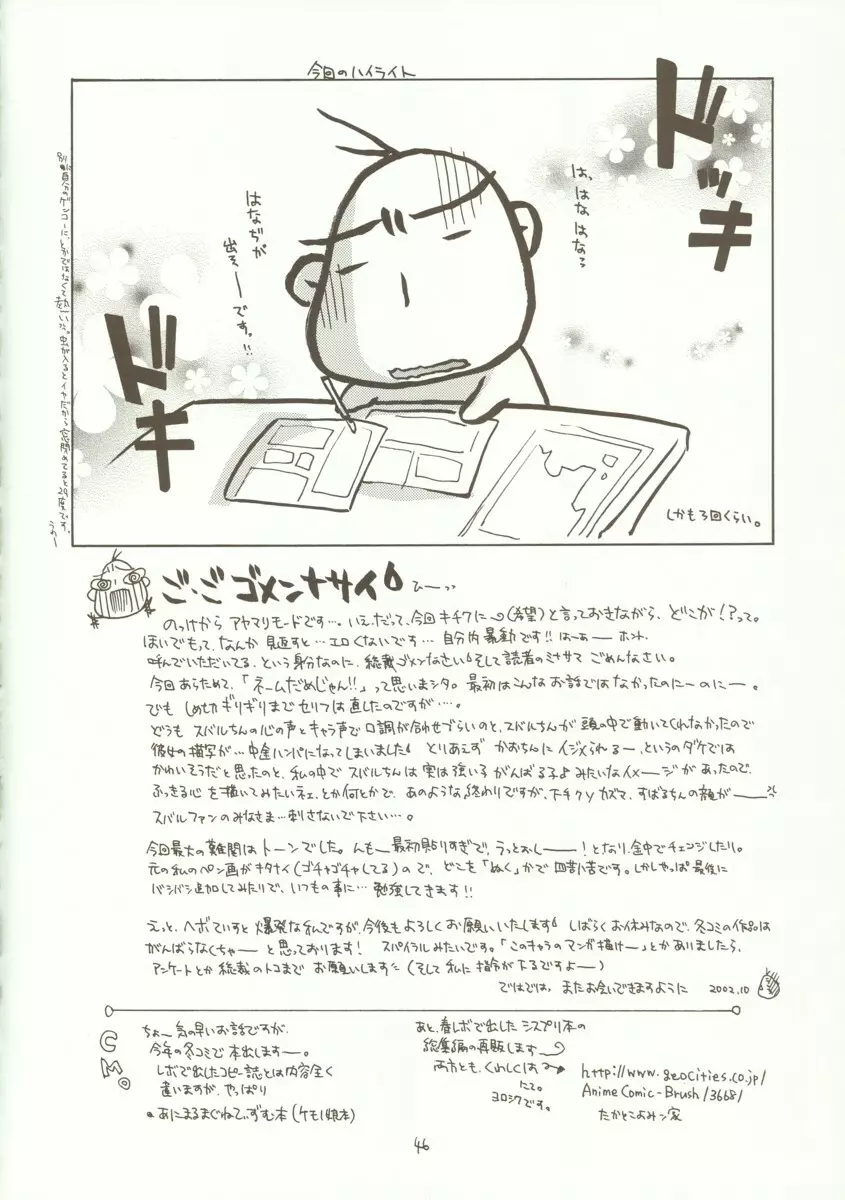 今回のハイライト
ドッキ
は、はなはなぢ
はなぢが
出そーですっ!!
ドキ
しかも3回くらい。
別に自分のゲンコーに、とかではなくて熱いだ。虫が入るとイヤだから窓閉めてると29度です。うわー
ご・ごゴメンナサイ ひーっっ
のっけからアヤマリモードです…。いえ、だって、今回キチクに(希望)と言っておきながら、どこが!?って。
ほいでもって、なんか見返すと…エロくないです…自分内暴動です!!はーあーホント、
呼んでいただいてる、という身分なのに、総裁ゴメンなさい。そして読者のミナサマごめんなさい。
今回あらためて、「ネームだめじゃん!!」って思いまシタ。最初はこんなお話ではなかったのにーのにー。
でもしめ切りギリギリまでセリフは直したのですが…。
どうもスバルちんの心の声とキャラ声で口調が合わせづらいのと、スバルちんが頭の中で動いてくれなかったので
彼女の描写が…中途ハンパになってしまいました。とりあえずかおちんにイジメられるー、というのダケでは
かわいそうだと思ったのと、私の中でスバルちんは実は強い子がんばる子♪みたいなイメージがあったので、
ふっきる心を描いてみたいネェ、とか何とかで、あのような終わりですが、下チクyカズマ、すばるちんの顔がーー
スバルファンのみなさま…刺さないで下さい…。
今回最大の難関はトーンでした。んもー最初貼りすぎで、うっとおしーー!となり、途中でチェンジしたり。
元の私のペン画がキタナイ(ゴチャゴチャしてる)ので、どこを「ぬく」かで四苦八苦です。しかしやっぱ最後に
バシバシ追加してみたりで、いつもの事に…勉強してきます!!
えっと、ヘボていすと爆発な私ですが、今後もよろしくお願いいたします。しばらくお休みなので、冬コミの作品は
がんばらなくちゃーと思っております! スパイラルみたいです。「このキャラのマンガ描けー」とかありましたら、
アンケートとか総裁のトコまでお願いします(そして私に指令が下るですよー)
ではでは、またお会いできますように 2002.10
CM。
ちょー気の早いお話ですが、
今年の冬コミで本出しますー。
レボで出したコピー誌とは内容全く
違いますが、やっぱり
●あにまるまぐねてぃずむ本(ケモノ娘本)
あと、春レボで出したシスプリ本の
総集編の再販します
両方とも、くわしくは→
http://www.geocities.co.jp/
AnimeComic-Brush/3668/
たかとこよみン家
にて。
ヨロシクです。
46